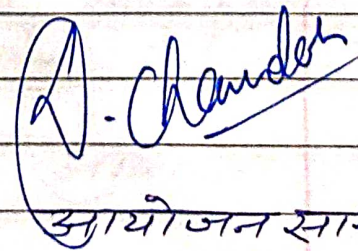 D. Chandan
आयोजन सा-